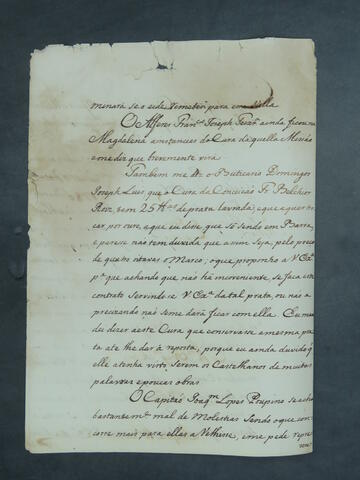 minará se o eide remeter para essa Villa
O Alferes Fran.co Joseph Teix.ra ainda ficou na
Magdalena amotancias do Cura daquella Missão
e me diz que brevemente virá
Tambem me diz o Buticario Domingos
Joseph Luis que o Cura da Conceicão Fr Belchior
tem 25 de prata lavrada, e que a quer tro
car por ouro, a que eu dise que só sendo em Barra,
e parese não tem duvida que asim seja, pelo preço
de quatro oitavas o Marco; o que proponho a V Ex.a
p.a que achando que não há inconveniente se faça este
contrato Servindo se V Ex.a da tal prata, ou não a
precizando não se me dará ficar com ella. Eu man
du dizer a este Cura que conservase a mesma pra
ta athe lhe dar a reposta, porque eu ainda duvido q
elle a tenha visto serem os Castelhanos de muitas
palavras e poucas obras
O Capitão Joaq.m Lopes Poupino se acha
bastantem.te mal de Molestias Sendo o que con
corre mais para ellas a Velhesse, e me pede repre
zen